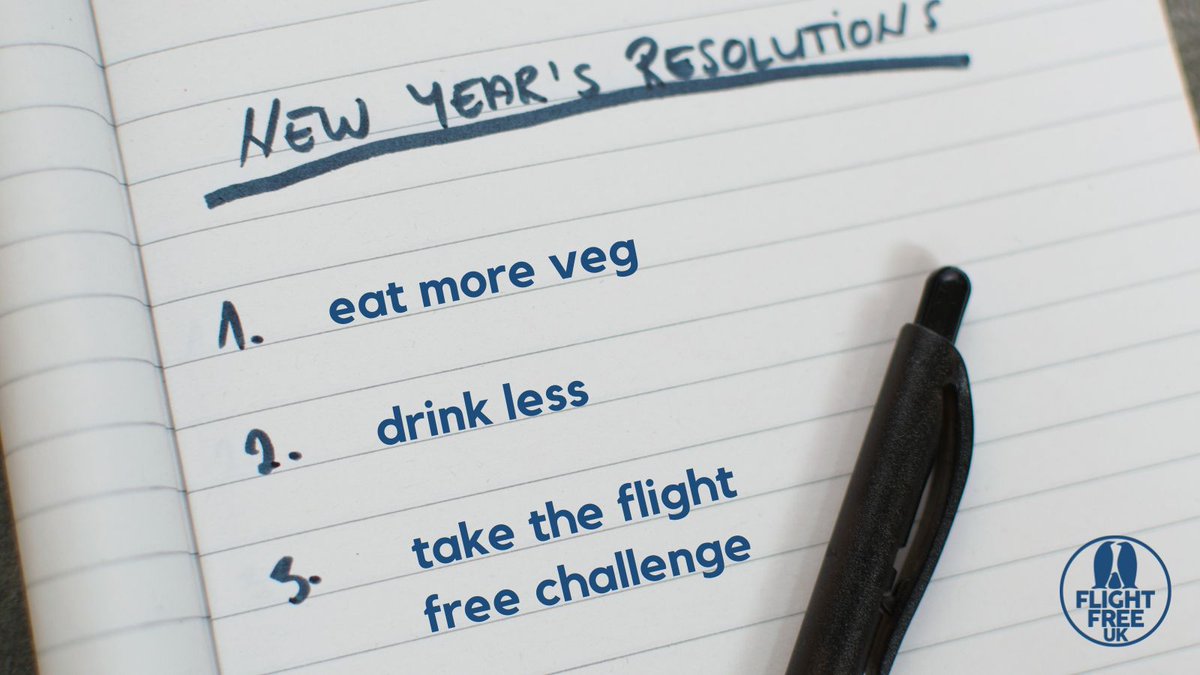 NEW YEAR'S RESOLUTIONS
1. eat more veg
2. drink less
3. take the flight
free challenge
FLIGHT
FREE
UK